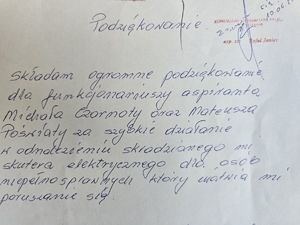 Podziękowanie
Składam ogromne podziękowanie
dla funkcjonariuszy aspiranta
Michała Czarnoty oraz Mateusza
Poświaty za szybkie działanie
w odnalezieniu skradzionego mi
skutera elektrycznego dla osób
niepełnosprawnych który ułatwia mi
poruszanie się.